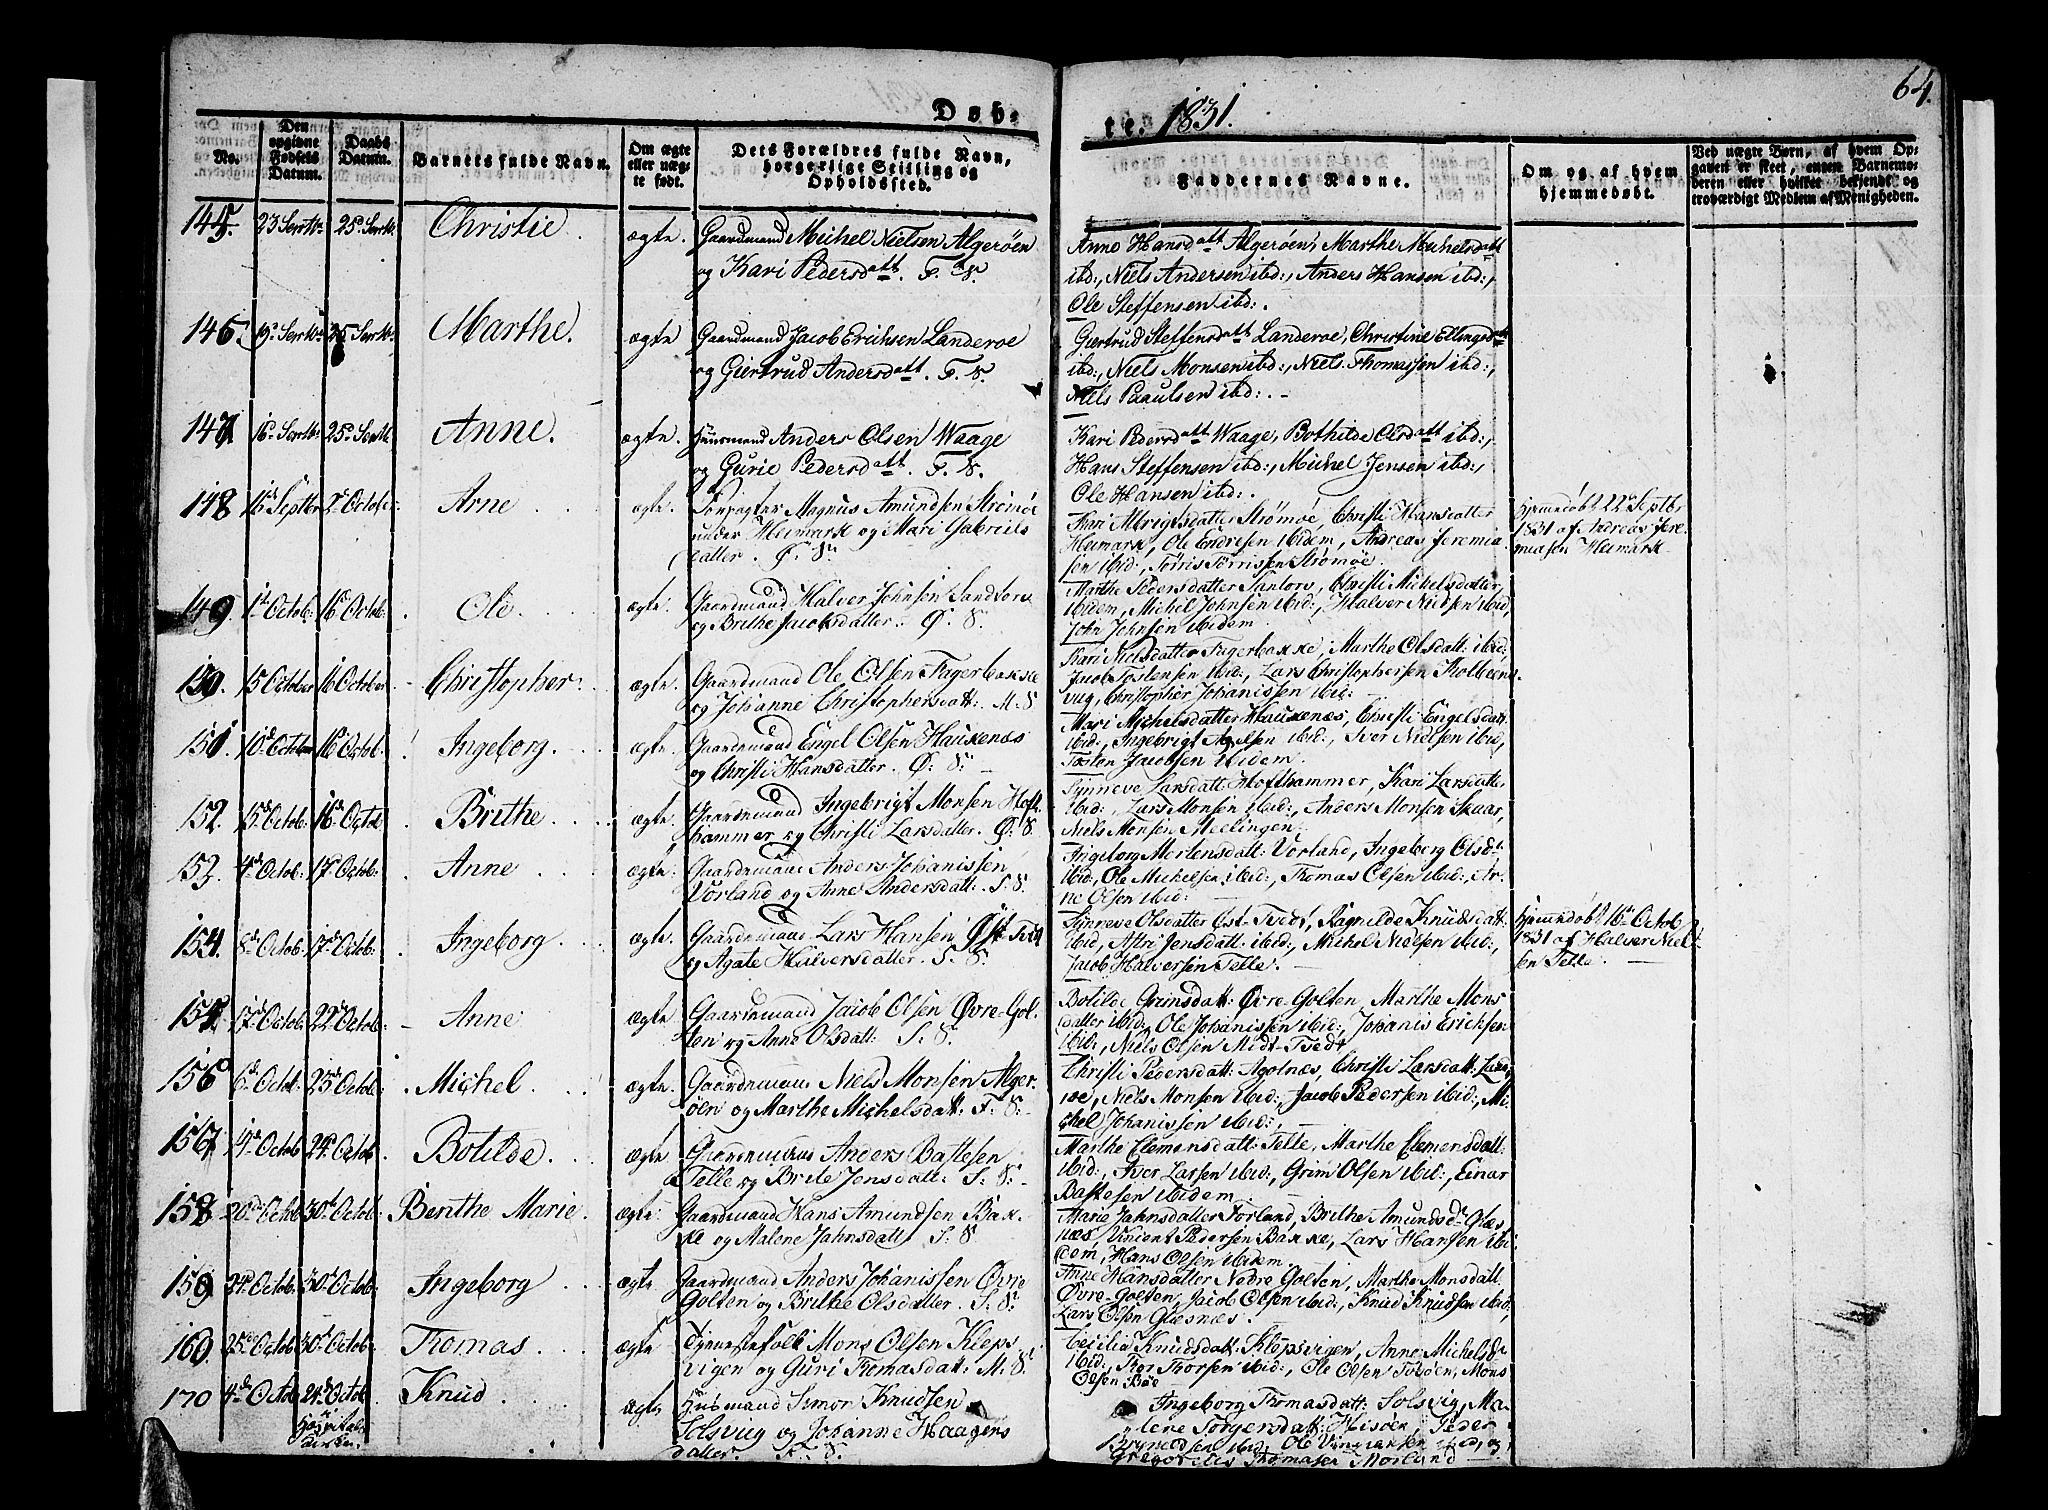 64.
Døb-
te. 1831.
No.
Den opgivne Fødsels Datum.
Daabs Datum.
Barnets fulde Navn.
Om ægte eller uægte født.
Dets Forældres fulde Navn, borgerlige Stilling og Opholdssted.
Faddernes Navne.
Om og af hvem hjemmedøbt.
Ved uægte Børn, af hvem Opgaven er skeet, enten Barnemoderen eller hvilket bekjendt og troværdigt Medlem af Menigheden.
145. 23 Septbr 25de Septbr Christie ægte. Gaardmand Michel Nielsen Algerøen
og Kari Pedersdatt. F. S.
Anne Hansdatt Algerøen, Marthe Michelsdatt
ibd:, Niels Andersen ibd:, Anders Hansen ibd:,
Ole Steffensen ibd:.
146. 19de Septbr 25 Septbr Marthe. ægte Gaardmand Jacob Erichsen Landeroe
og Giertrud Andersdatt. F. S.
Giertrud Steffensdatt Landeroe, Christine Ellingsdatt
ibd:, Niels Monsen ibd:, Niels Thomassen ibd:,
Niels Paulsen ibd:. -
147. 16de Septbr 25de Septbr Anne. ægte. Huusmand Anders Olsen Waage
og Gurie Pedersdatt. F. S.
Kari Pedersdatt Waage, Bothilde Olsdatt ibd:,
Hans Steffensen ibd:, Michel Jensen ibd:,
Ole Hansen ibd:.
148 16de Septbr 2de October Arne ægte. Forpagter Magnus Amundsen Strømøe
under Heimark og Mari Gabriels
datter. Ø. S.
Kari Albrigtsdatter Strømøe, Christi Hansdatter
Heimark, Ole Endresen ibidem, Andreas Jeremia
sen ibid:, Tørris Tørrissen Strømøe
hjemmedøbt 22de Septb.
1831 af Andreas Jere-
miasen Heimark
149. 1ste Octob: 16de Octob: Ole. ægte. Gaardmand Halver Johnsen Sandtorv
og Brithe Jacobsdatter. Ø. S.
Marthe Pedersdatter Santorv, Christi Michelsdatter
ibidem, Michel Johnsen ibid:, Halver Nielsen ibid,
John Johnsen ibidem
150. 15 October 16 October Christopher. ægte. Gaardmand Ole Olsen Fagerbakke
og Johanne Christophersdatt: M: S
Kari Nielsdatter Fagerbakke, Marthe Olsdatt: ibid:
Jacob Tostensen ibid:, Lars Christophersen Kolbeens-
vig, Christopher Johanissen ibid:
151. 10de October 16de Octob: Ingeborg. ægte. Gaardmand Engel Olsen Haukenæs
og Christi Hansdatter. Ø: S:
Mari Michelsdatter Haukenæs, Christi Engelsdatt.
ibid:, Ingebrigt Agelsen ibid:, Iver Nielsen ibid,
Tosten Jacobsen ibidem.
152. 15de Octob: 16de Octob Brithe ægte. Gaardemand Ingebrigt Monsen Hoft
hammer og Christi Larsdatter. Ø: S.
Synneve Larsdatt: Hofthammer, Kari Larsdatter
ibid:, Lars Monsen ibid:, Anders Monsen Skaar,
Niels Monsen Meelingen.
153. 4de Octob: 17de Octob: Anne ægte. Gaardemand Anders Johanissen
Vorland og Anne Andersdatt: S. S.
Ingeborg Mortensdatt: Vorland, Ingeborg Olsd:
ibid:, Ole Michelsen ibid:, Thomas Olsen ibid:, Ar-
ne Olsen ibid:
154. 8de Octob: 17de Octob: Ingeborg ægte. Gaardemand Lars Hansen Øst-Tvet
og Agate Halversdatter. S. S.
Synneve Olsdatter Øst-Tvedt, Ragnilde Knudsdatt:
ibid, Astri Jensdatt: ibid:, Michel Nielsen ibid:,
Jacob Halversen Telle.
hjemmedøbt 16de Octob
1831 af Halver Niel-
sen Telle
155 17de Octob: 22de Octob: Anne ægte. Gaardemand Jacob Olsen Øvre-Gol-
ten og Anne Olsdatt: S. S.
Botilde Grimsdatt: Øvre-Golten, Marthe Mons
datter ibid:, Ole Johanissen ibid:, Johanis Ericksen
ibid:, Niels Olsen Midt-Tvedt
156 6de Octob: 23de Octob: Michel. ægte. Gaardemand Niels Monsen Alger-
øen og Marthe Michelsdatt: F: S:
Christi Pedersdatt: Agolnæs, Christi Larsdatt: Land-
røe, Niels Monsen ibid:, Jacob Pedersen ibid:, Mi-
chel Johanissen ibid:,
157 14de Octob 24de Octob Botilde. ægte. Gaardemand Anders Bastesen
Telle og Brite Jensdatt: S: S:
Marthe Clemensdatt: Telle, Marthe Clemensdatt:
ibid:, Iver Larsen ibid:, Grim Olsen ibid:, Einar
Bastesen ibidem
158 20de Octob 30de Octob: Benthe Marie. ægte. Gaardmand Hans Amundsen Bak-
ke og Malene Jahnsdatt S. S
Marie Jahnsdatter Forland, Brithe Amundsd. Glæs
næs, Vincent Pedersen Bakke, Lars Hansen ibi-
dem, Hans Olsen ibidem
159 24de Octob: 30de Octob: Ingeborg ægte Gaardmand Anders Johanissen Øvre
Golten og Brithe Olsdatter. S: S:
Anne Hansdatter Nedre Golten, Marthe Monsdatt.
Øvre-Golten, Jacob Olsen ibid:, Knud Knudsen ibid:,
Lars Olsen Glæsnæs.
160. 25de Octob 30de Octob: Thomas ægte. Tjenestefolk Mons Olsen Kleps
vigen og Guri Thomasdatt: M: S:
Cecilia Knudsdatt: Klepsvigen, Anne Michelsd.
ibid:, Thor Thorsen ibid:, Ole Olsen Tvedøen, Mons
Olsen Bøe
170 4de Octob 24de Octob Knud ægte Huusmand Simon Knudsen
i Hospitals
Kirken.
Solsvig og Johanne Haagens
datter. F. S.
Ingeborg Thomasdatt: Solsvig, Ma-
lene Torgersdatt: Hisøen, Peder
Brynildsen ibid, Ole ibid, og
Gregorius Thomassen Morland